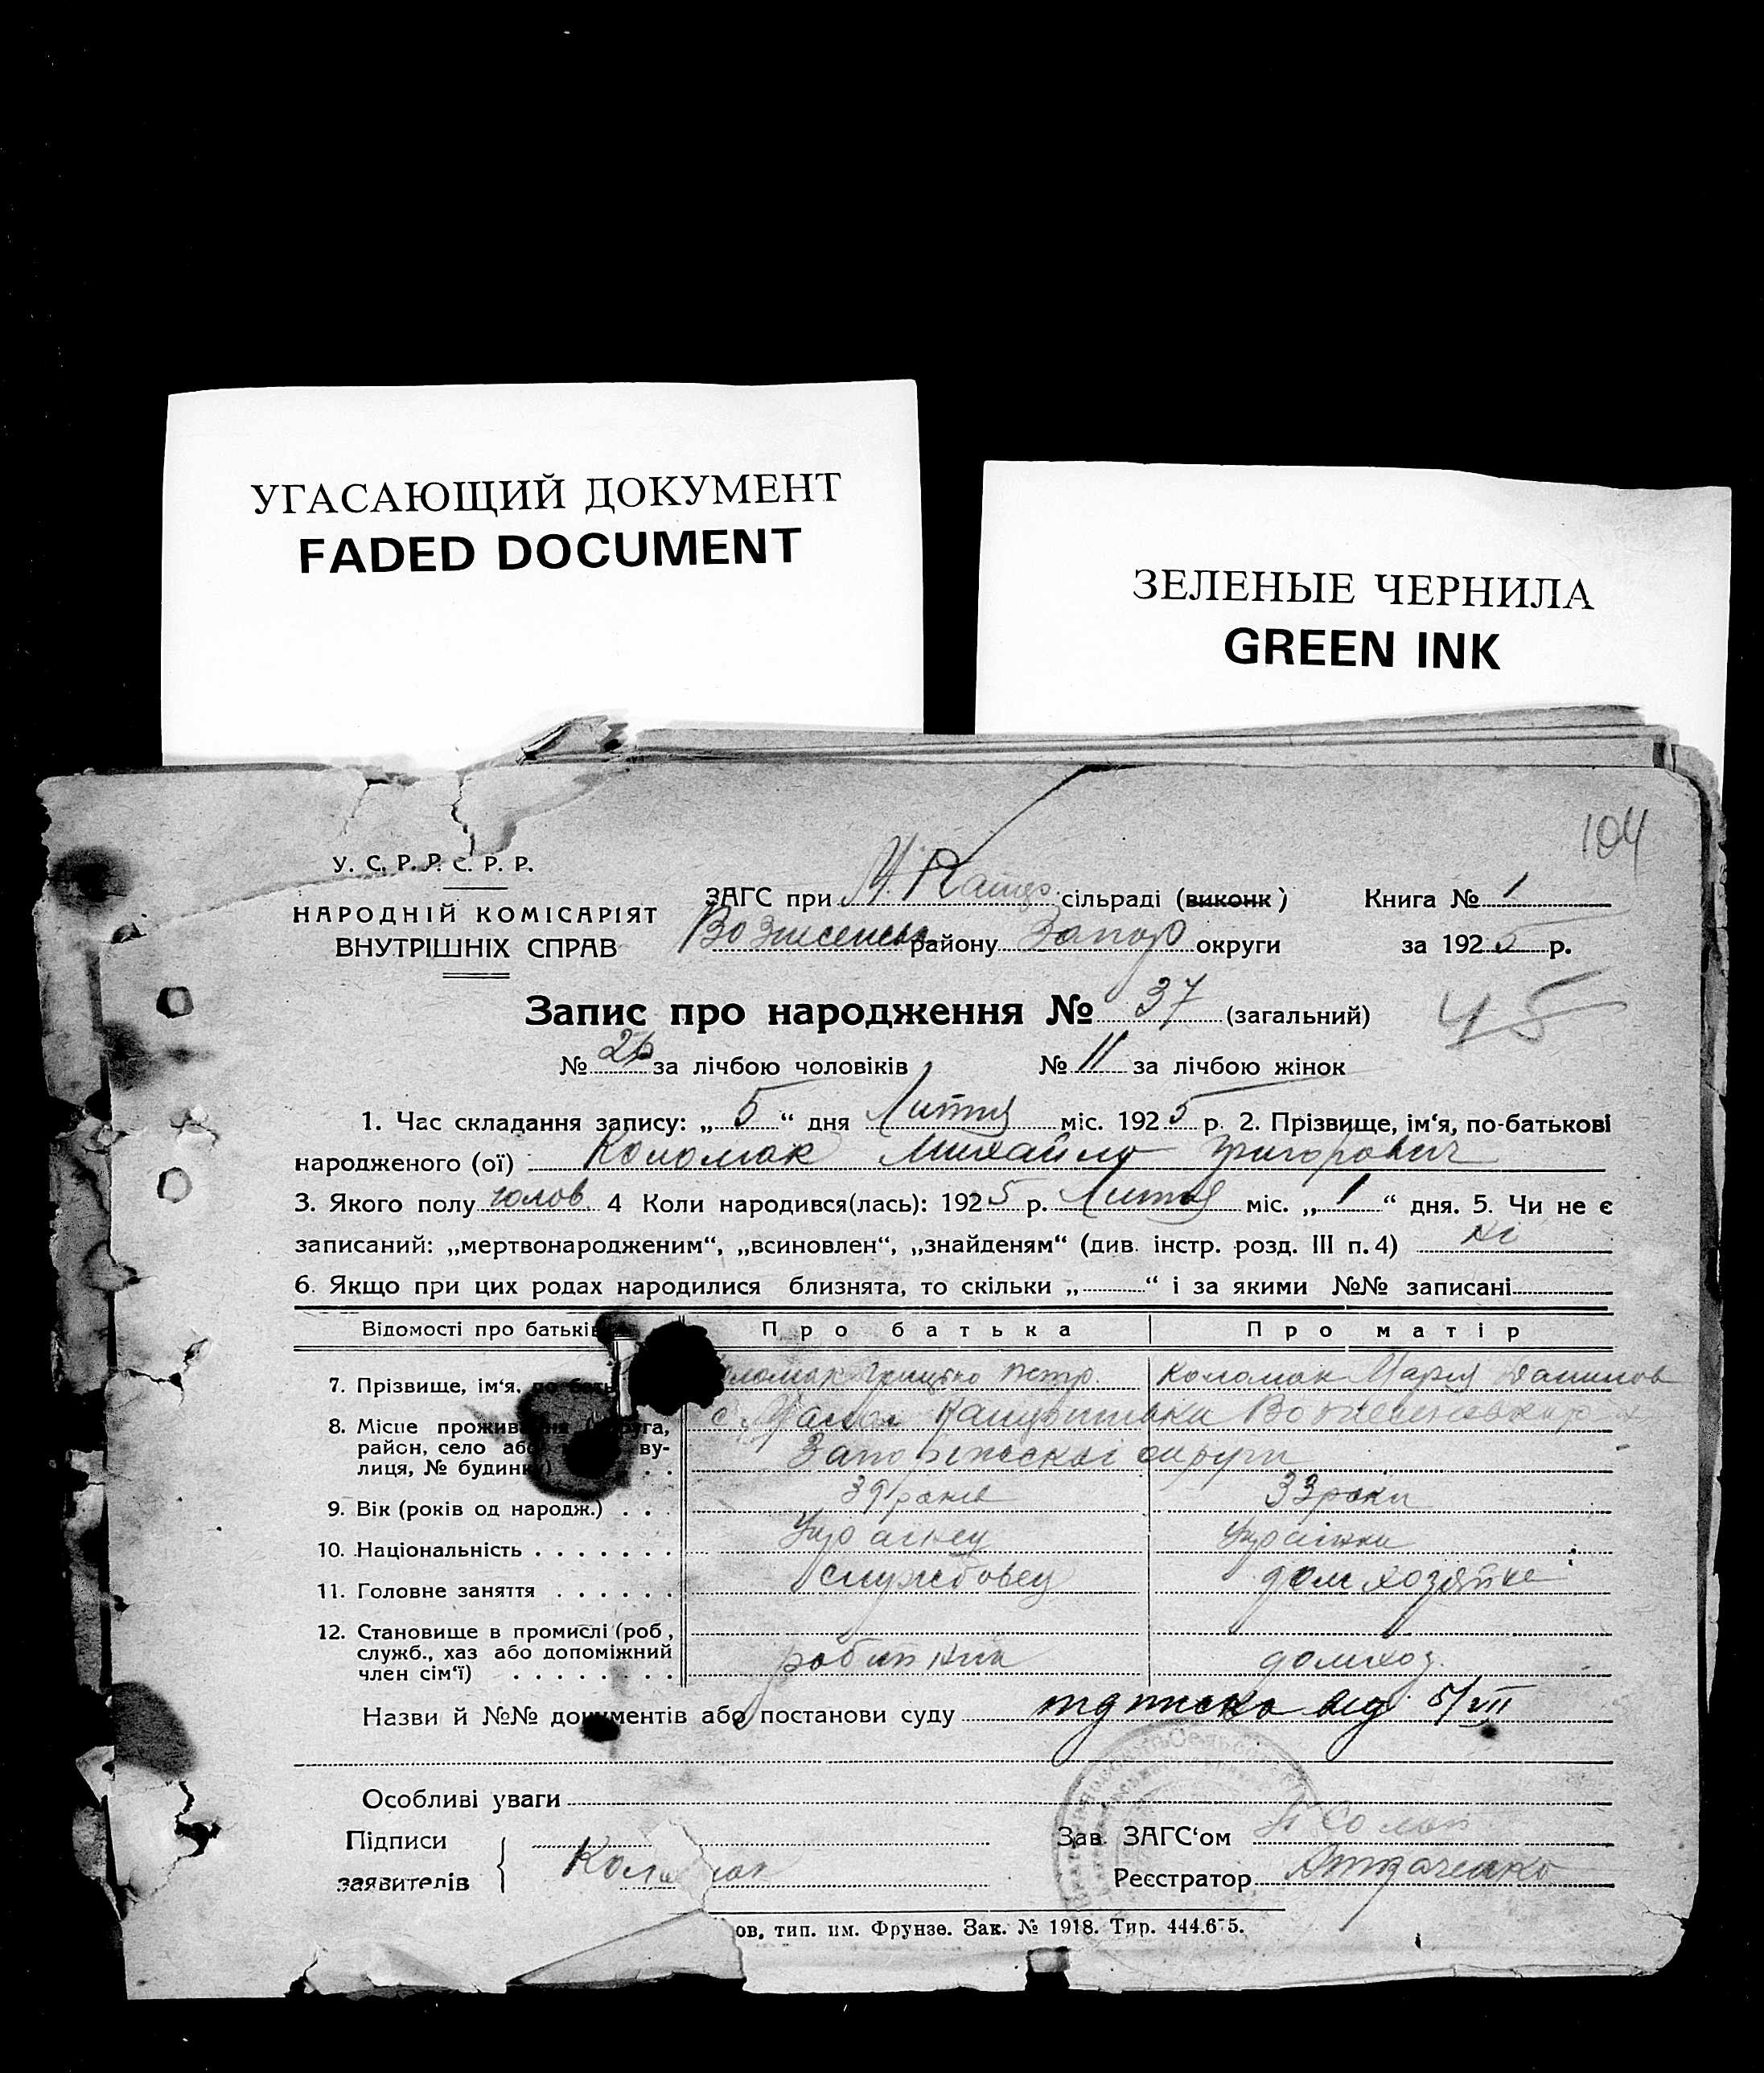 УГАСАЮЩИЙ ДОКУМЕНТ
FADED DOCUMENT
ЗЕЛЕНЫЕ ЧЕРНИЛА
GREEN INK
104
У. С. Р. Р. С. Р. Р.
НАРОДНІЙ КОМІСАРІЯТ
ВНУТРІШНІХ СПРАВ
ЗАГС при М. Катер. сільраді (виконк) Книга № 1
Вознесенськ району Запор округи за 1925 р.
Запис про народження № 37 (загальний)
45
№ 26 за лічбою чоловіків № 11 за лічбою жінок
1. Час складання запису: „ 5 “ дня Липня міс. 1925 р. 2. Прізвище, ім‘я, по-батькові
народженого (ої) Коломак Михайло Григорович
3. Якого полу чолов. 4 Коли народився(лась): 1925 р. Липня міс. „ 1 “ дня. 5. Чи не є
записаний: „мертвонародженим“, „всиновлен“, „знайденям“ (див. інстр. розд. III п. 4) ні
6. Якщо при цих родах народилися близнята, то скільки „ “ і за якими №№ записані
Відомості про батьків Про батька Про матір
7. Прізвище, ім‘я, по-бать Коломак Грицько Петр. Коломак Марія Данилов
8. Місце проживання округа,
район, село або ву-
лиця, № будинку) с. Вознесенськ р
Запоріжської округи
9. Вік (років од народж.) 39 років 33 роки
10. Національність Українец Українка
11. Головне заняття службовец дом хозяйка
12. Становище в промислі (роб,
служб., хаз або допоміжний
член сім‘ї) робитник домхоз.
Назви й №№ документів або постанови суду підписка від 5/VII
Особливі уваги
Підписи
заявителів Коломак
Зав. ЗАГС‘ом
Реєстратор
ов. тип. им. Фрунзе. Зак. № 1918. Тир. 444.675.